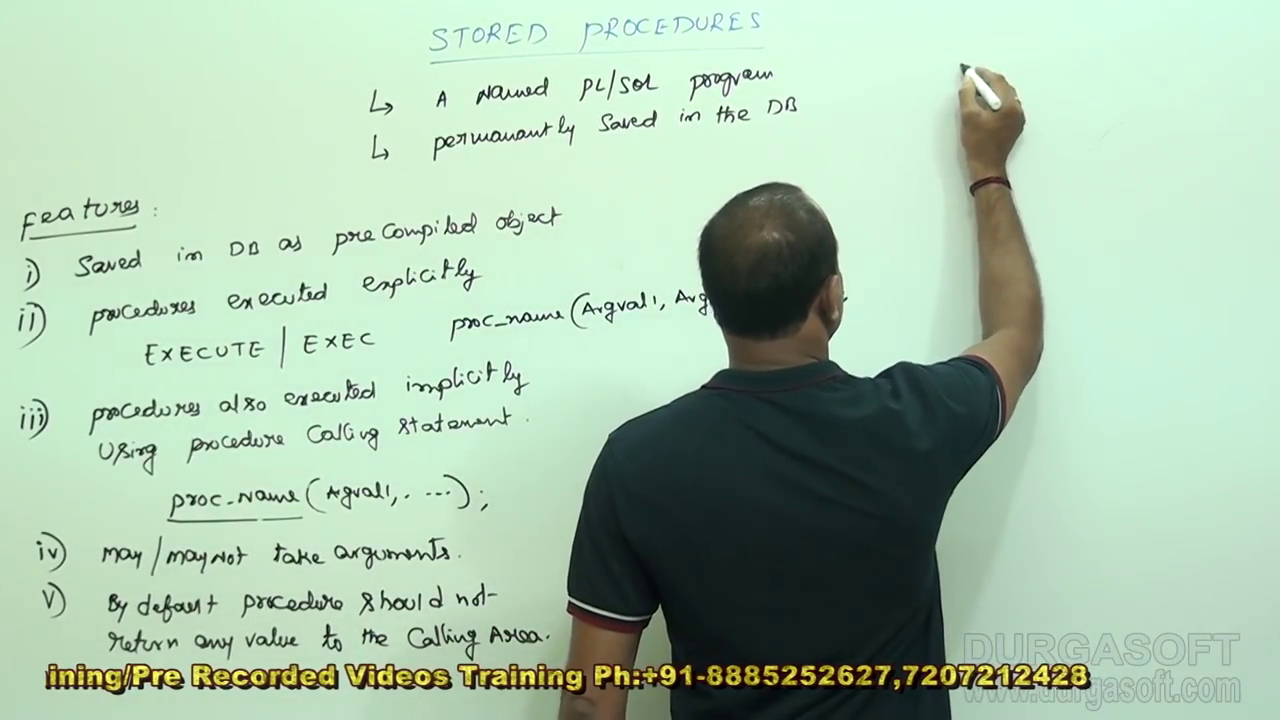 STORED PROCEDURES
↳ A Named PL/SQL program
↳ permanantly Saved in the DB
Features :
i) Saved in DB as precompiled object
ii) procedures executed explicitly
EXECUTE | EXEC proc_name (Argval1, Arg
iii) procedures also executed implicitly
Using procedure calling statement.
proc_Name (Agval1, . ...);
iv) may/maynot take arguments.
v) By default procedure should not
return any value to the calling Area.
DURGASOFT
ining/Pre Recorded Videos Training Ph:+91-8885252627,7207212428
www.durgasoft.com